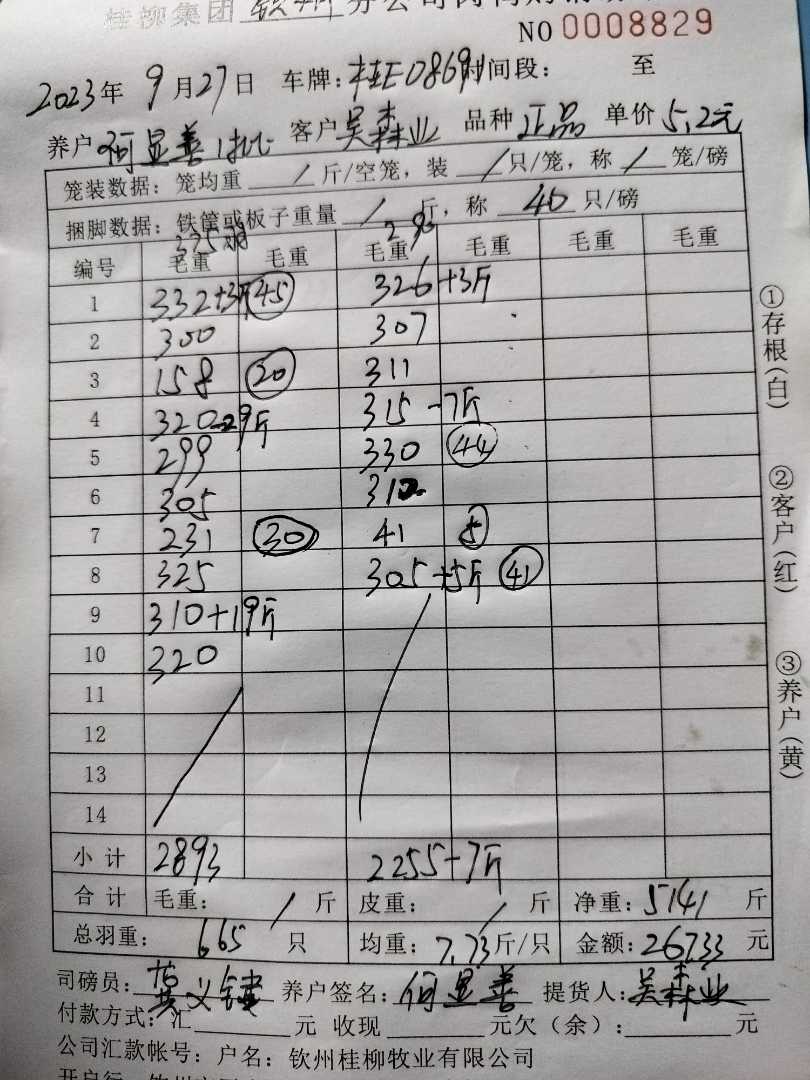 桂柳集团 钦州 分公司
NO 0008829
2023年 9月27日 车牌:桂E0869 时间段: 至
养户 何显善 1批 客户 吴森业 品种 正品 单价 5.2元
笼装数据:笼均重 / 斤/空笼,装 / 只/笼,称 / 笼/磅
捆脚数据:铁筐或板子重量 / 斤,称 40 只/磅
375羽
编号 毛重 毛重 毛重 毛重 毛重 毛重
1 332+3斤 45 326+3斤
2 300 307
3 158 20 311
4 320-29斤 315-7斤
5 299 330 44
6 305 310
7 231 30 41 5
8 325 305+5斤 41
9 310+19斤
10 320
11
12
13
14
小计 2893 2255-7斤
合计 毛重: / 斤 皮重: / 斤 净重:5141 斤
总羽重: 665 只 均重:7.73斤/只 金额:26733 元
司磅员: 养户签名:何显善 提货人:吴森业
付款方式:汇 元 收现 元欠(余): 元
公司汇款帐号:户名:钦州桂柳牧业有限公司
①存根(白)
②客户(红)
③养户(黄)